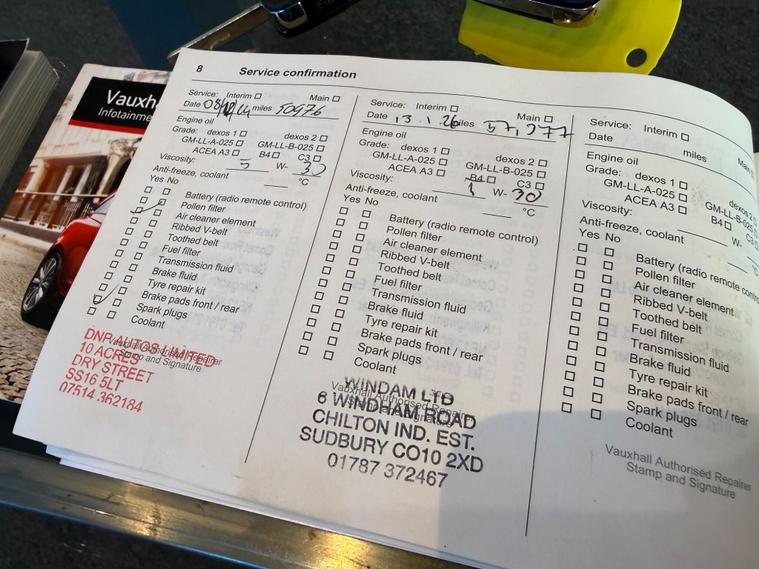 8 Service confirmation
Vauxh
Infotainme
Service: Interim Main
Date 08/ /24 miles 50976
Engine oil
Grade: dexos 1 dexos 2
GM-LL-A-025 GM-LL-B-025
ACEA A3 B4 C3
Viscosity: 5 W- 30
Anti-freeze, coolant °C
Yes No
Battery (radio remote control)
Pollen filter
Air cleaner element
Ribbed V-belt
Toothed belt
Fuel filter
Transmission fluid
Brake fluid
Tyre repair kit
Brake pads front / rear
Spark plugs
Coolant
Vauxhall Authorised Repairer
Stamp and Signature
DNP AUTOS LIMITED
10 ACRES
DRY STREET
SS16 5LT
07514 362184
Service: Interim Main
Date 13.1.26 miles 57,977
Engine oil
Grade: dexos 1 dexos 2
GM-LL-A-025 GM-LL-B-025
ACEA A3 B4 C3
Viscosity: W-
Anti-freeze, coolant °C
Yes No
Battery (radio remote control)
Pollen filter
Air cleaner element
Ribbed V-belt
Toothed belt
Fuel filter
Transmission fluid
Brake fluid
Tyre repair kit
Brake pads front / rear
Spark plugs
Coolant
Vauxhall Authorised Repairer
Stamp and Signature
WINDAM LTD
6 WINDHAM ROAD
CHILTON IND. EST.
SUDBURY CO10 2XD
01787 372467
Service: Interim Main
Date miles
Engine oil
Grade: dexos 1 dexos 2
GM-LL-A-025 GM-LL-B-025
ACEA A3 B4 C3
Viscosity: W-
Anti-freeze, coolant °C
Yes No
Battery (radio remote
Pollen filter
Air cleaner element
Ribbed V-belt
Toothed belt
Fuel filter
Transmission fluid
Brake fluid
Tyre repair kit
Brake pads front / rear
Spark plugs
Coolant
Vauxhall Authorised Repairer
Stamp and Signature